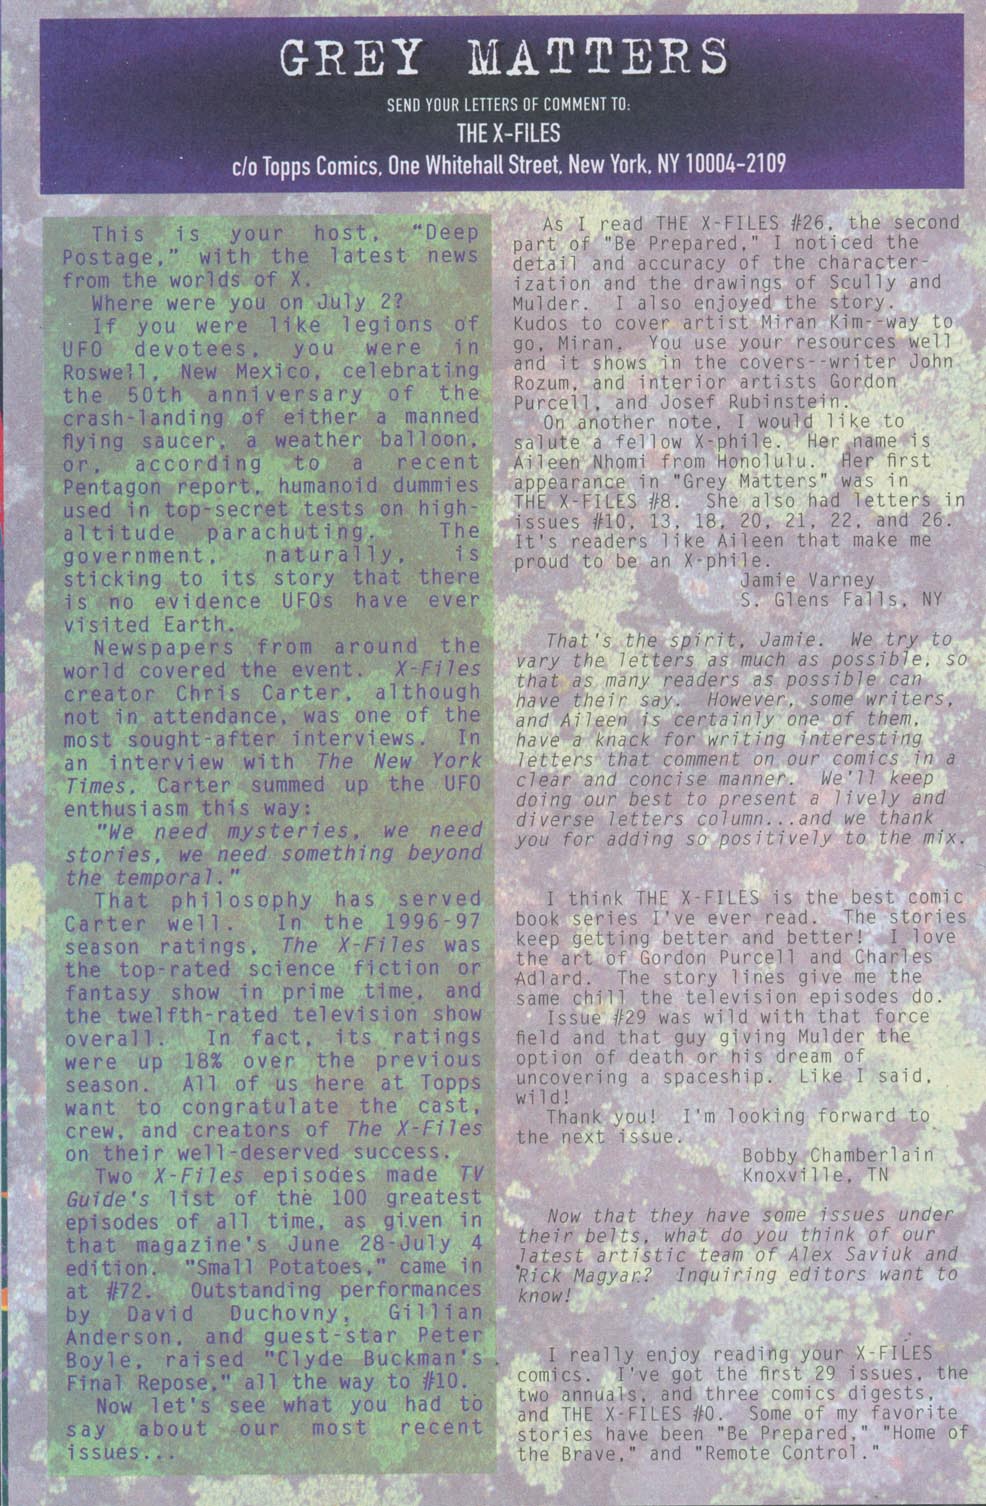 GREY MATTERS
SEND YOUR LETTERS OF COMMENT TO:
THE X-FILES
c/o Topps Comics, One Whitehall Street, New York, NY 10004-2109
This is your host, "Deep
Postage," with the latest news
from the worlds of X.
Where were you on July 2?
If you were like legions of
UFO devotees, you were in
Roswell, New Mexico, celebrating
the 50th anniversary of the
crash-landing of either a manned
flying saucer, a weather balloon,
or, according to a recent
Pentagon report, humanoid dummies
used in top-secret tests on high-
altitude parachuting. The
government, naturally, is
sticking to its story that there
is no evidence UFOs have ever
visited Earth.
Newspapers from around the
world covered the event. X-Files
creator Chris Carter, although
not in attendance, was one of the
most sought-after interviews. In
an interview with The New York
Times, Carter summed up the UFO
enthusiasm this way:
"We need mysteries, we need
stories, we need something beyond
the temporal."
That philosophy has served
Carter well. In the 1996-97
season ratings, The X-Files was
the top-rated science fiction or
fantasy show in prime time, and
the twelfth-rated television show
overall. In fact, its ratings
were up 18% over the previous
season. All of us here at Topps
want to congratulate the cast,
crew, and creators of The X-Files
on their well-deserved success.
Two X-Files episodes made TV
Guide's list of the 100 greatest
episodes of all time, as given in
that magazine's June 28-July 4
edition. "Small Potatoes," came in
at #72. Outstanding performances
by David Duchovny, Gillian
Anderson, and guest-star Peter
Boyle, raised "Clyde Buckman's
Final Repose," all the way to #10.
Now let's see what you had to
say about our most recent
issues...
As I read THE X-FILES #26, the second
part of "Be Prepared," I noticed the
detail and accuracy of the character-
ization and the drawings of Scully and
Mulder. I also enjoyed the story.
Kudos to cover artist Miran Kim--way to
go, Miran. You use your resources well
and it shows in the covers--writer John
Rozum, and interior artists Gordon
Purcell, and Josef Rubinstein.
On another note, I would like to
salute a fellow X-phile. Her name is
Aileen Nhomi from Honolulu. Her first
appearance in "Grey Matters" was in
THE X-FILES #8. She also had letters in
issues #10, 13, 18, 20, 21, 22, and 26.
It's readers like Aileen that make me
proud to be an X-phile.
Jamie Varney
S. Glens Falls, NY
That's the spirit, Jamie. We try to
vary the letters as much as possible, so
that as many readers as possible can
have their say. However, some writers,
and Aileen is certainly one of them,
have a knack for writing interesting
letters that comment on our comics in a
clear and concise manner. We'll keep
doing our best to present a lively and
diverse letters column...and we thank
you for adding so positively to the mix.
I think THE X-FILES is the best comic
book series I've ever read. The stories
keep getting better and better! I love
the art of Gordon Purcell and Charles
Adlard. The story lines give me the
same chill the television episodes do.
Issue #29 was wild with that force
field and that guy giving Mulder the
option of death or his dream of
uncovering a spaceship. Like I said,
wild!
Thank you! I'm looking forward to
the next issue.
Bobby Chamberlain
Knoxville, TN
Now that they have some issues under
their belts, what do you think of our
latest artistic team of Alex Saviuk and
Rick Magyar? Inquiring editors want to
know!
I really enjoy reading your X-FILES
comics. I've got the first 29 issues, the
two annuals, and three comics digests,
and THE X-FILES #0. Some of my favorite
stories have been "Be Prepared," "Home of
the Brave," and "Remote Control."